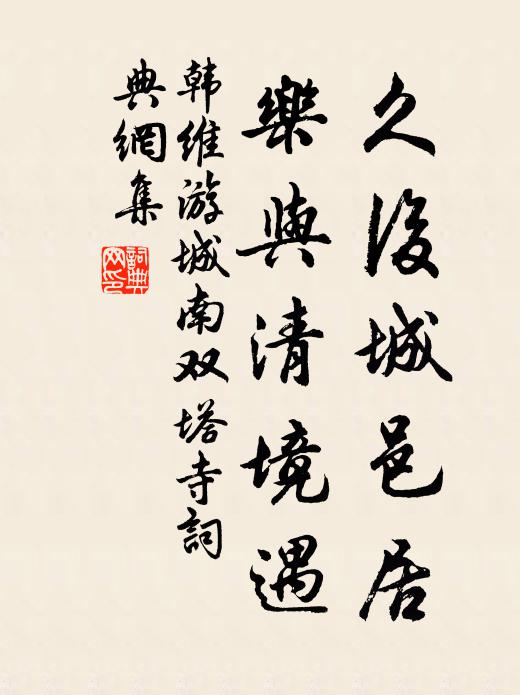 久城邑居
樂與清境遇
韩維游城南双塔寺詞
典網集
詞典
网印